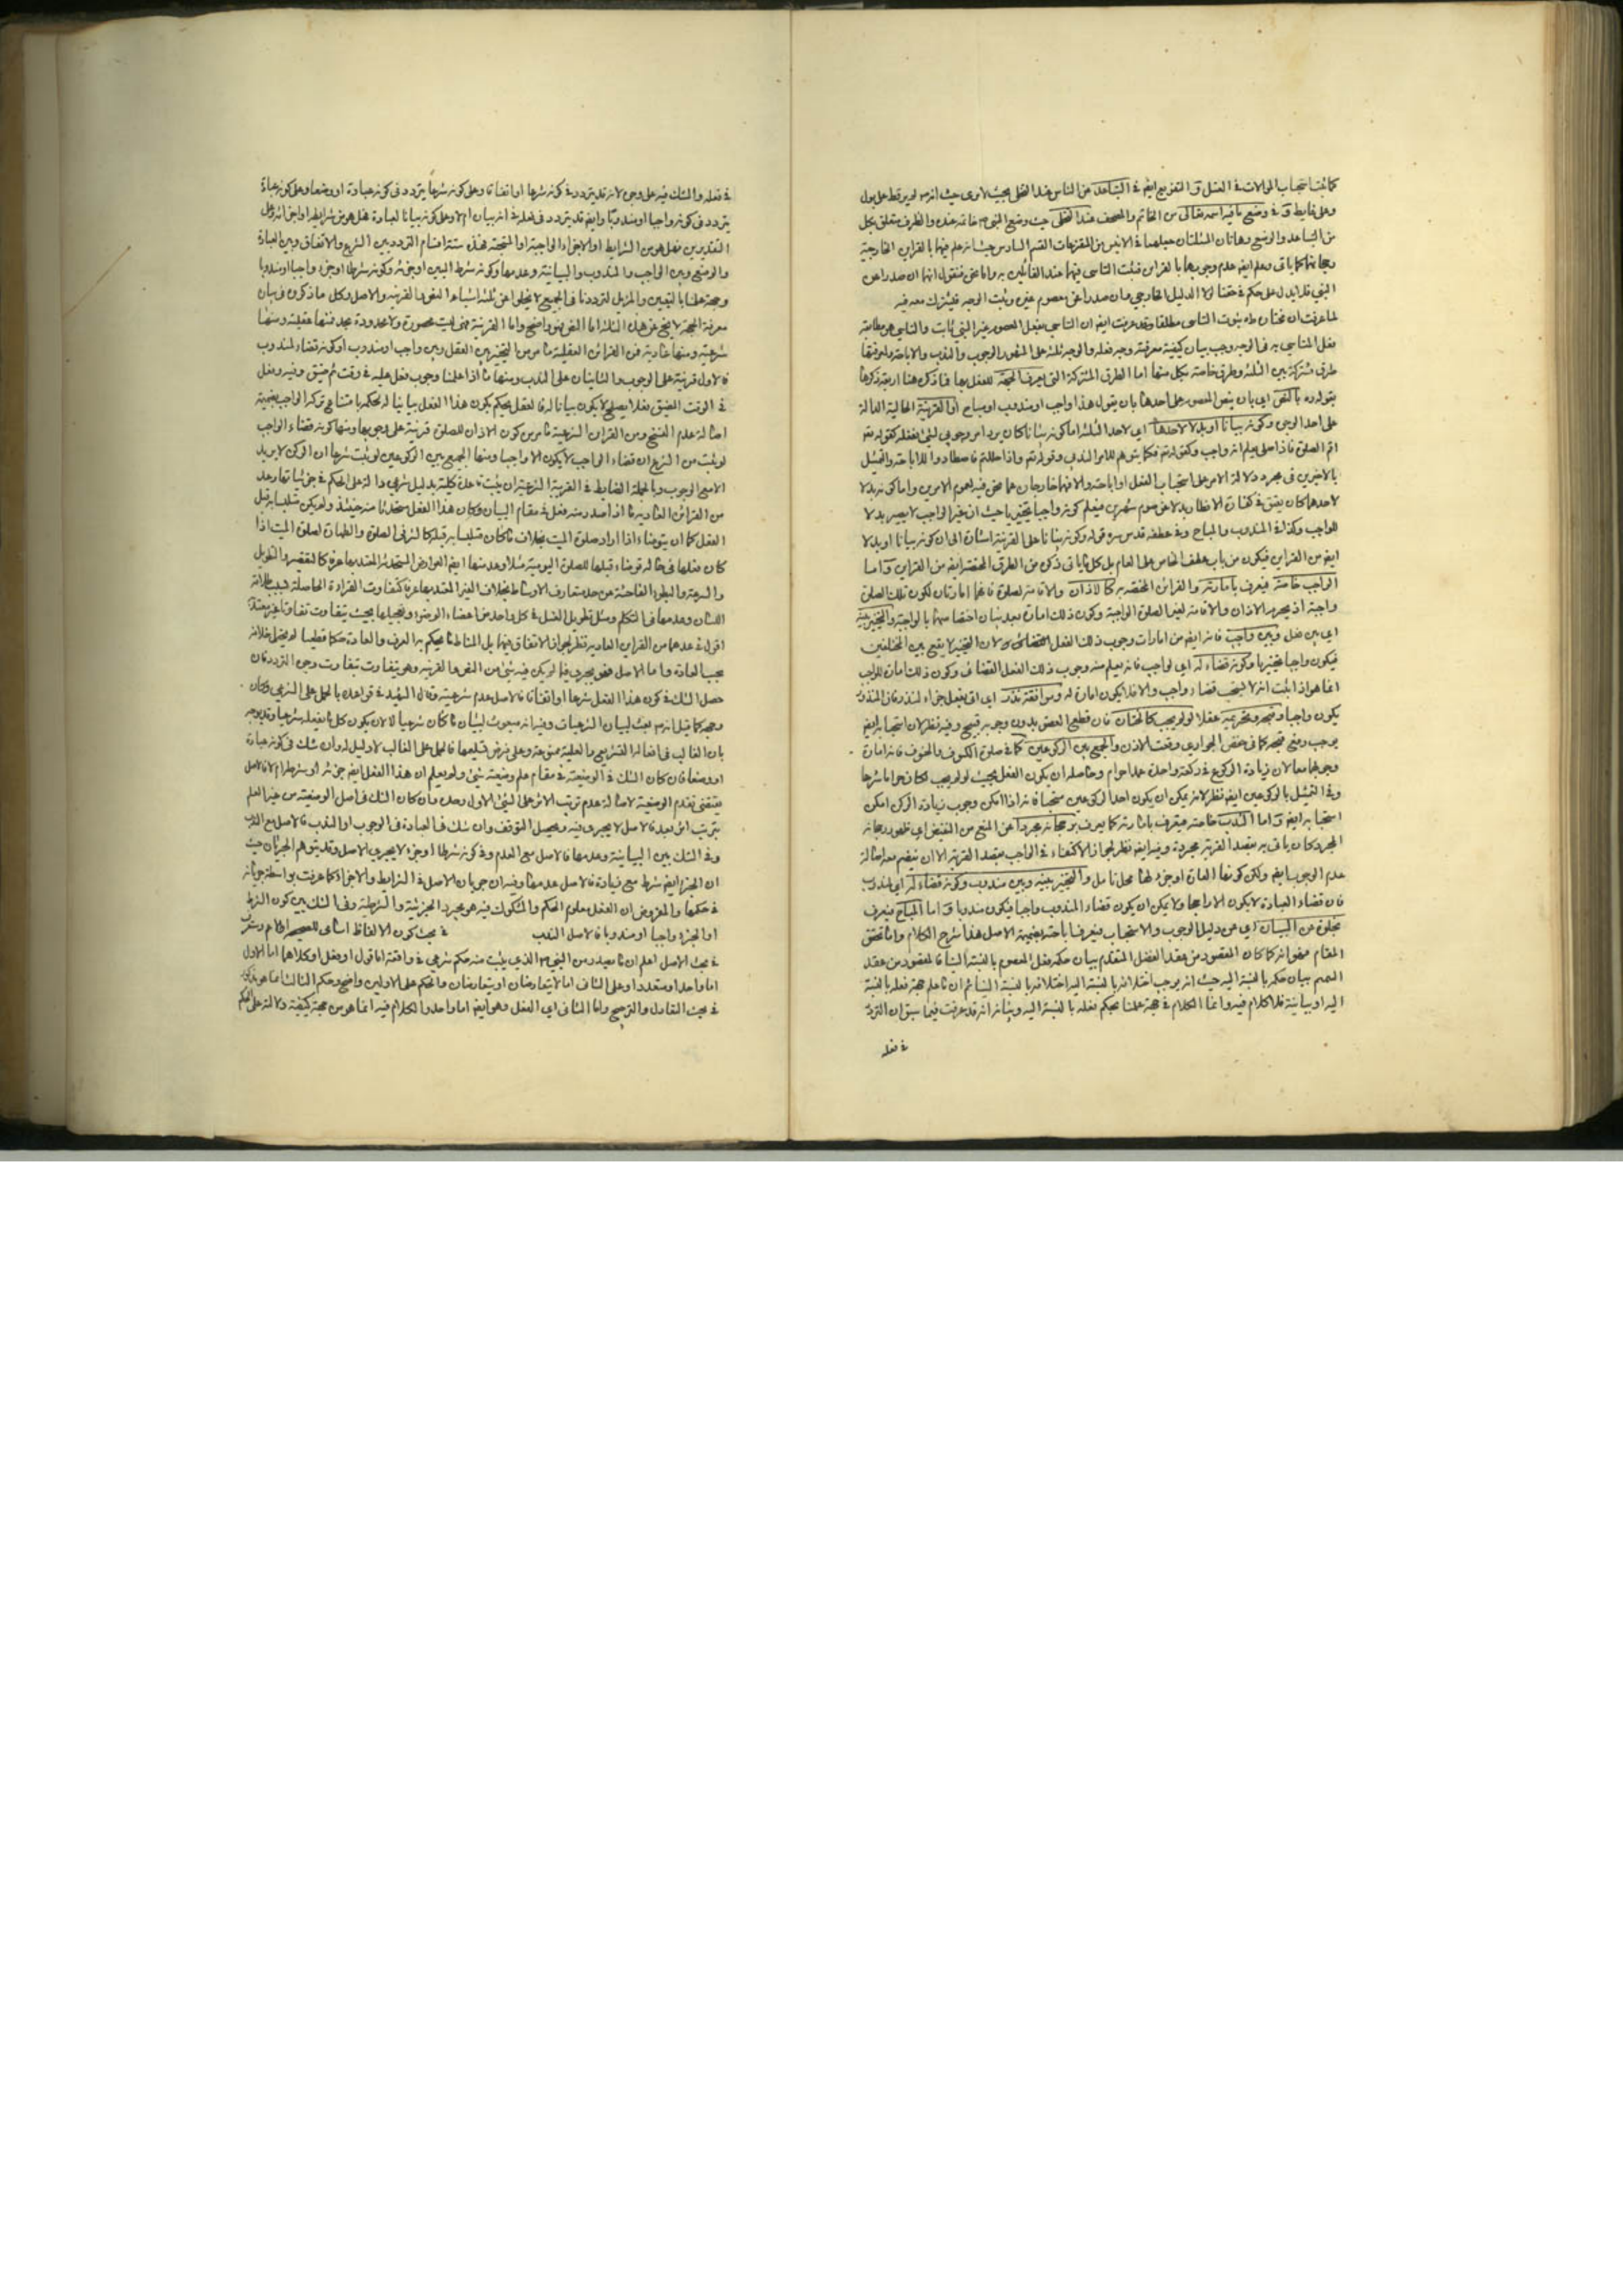 كما يثبت استحباب الموالات في الغسل و التفريج ايض في التباعد عن الناس عند التخلي بحيث لا يرى حيث انه لم ير قط على بول
وعلى غايط و في وضع ما فيه اسمه تعالى من الخاتم والمصحف عند التخلي حيث وضع النبي خاتمه عنده والظرف متعلق بكل
من التباعد والوضع وهاتان المسئلتان القسم السادس حيث انه علم فيهما بالقراين الخارجية
رجحانهما كما ياتي وعلم ايض عدم وجوبهما بالقراين فثبت التاسي فيهما عند القائلين به واما نحن فنقول انهما ان صدرا عن
النبي فلا يدل على حكم في حقنا لولا الدليل الخارجي وان صدرا عن معصوم غيره وثبت الوجه فيشترك معه فيه
لما عرفت ان مختاره ثبوت التاسي مطلقا وقد عرفت ايض ان التاسي بفعل المعصوم غير النبي ثابت والتاسي هو مطابقة
فعل المتاسي به في الوجه وجب بيان كيفية معرفة وجه فعله والوجه ثلثة على المشهور الوجوب والندب والاباحة ولمعرفتها
طرق مشتركة بين الثلثة وطرق خاصة بكل منها اما الطرق المشتركة التي يعرف الجهة للفعل بها فما ذكره هنا اربعة ذكرها
بقوله ره بالنص اي بان ينص المعصوم على احدها بان يقول هذا واجب او مندوب او مباح او القرينة الحالية الدالة
على احد الوجوه وكونه بيانا او بدلا لاحدها اي لاحد الثلثة اما كونه بيانا كان يرد امر وجوبي لشئ ففعله كقوله تع
اقم الصلوة فاذا صلى يعلم انه واجب وكقوله تع فكاتبوهم للامر الندبي وقوله تع واذا حللتم فاصطادوا للاباحة والتمثيل
بالاخيرين في مجرد دلالة الامر على استحباب الفعل او اباحته والا فهما خارجان عما نحن فيه لعموم الامرين واما كونه بدلا
لاحدها كان يعتق في كفارة الافطار بدلا عن صوم شهرين فيعلم كونه واجبا تخييريا حيث ان غير الواجب لا يصير بدلا
للواجب وكذا في المندوب والمباح وفي عطفه قدس سره قوله وكونه بيانا على القرينة اشارة الى ان كونه بيانا او بدلا
ايض من القراين فيكون من باب عطف الخاص على العام بل كل ما ياتي ذكره من الطرق المختصة ايض من القراين و اما
الواجب خاصة فيعرف بامارته والقراين المختصة به كالاذان والاقامة لصلوة فانهما امارتان لكون تلك الصلوة
واجبة اذ يحرم الاذان والاقامة لغير الصلوة الواجبة وكون ذلك امارة بعد بيان اختصاصهما بالواجبة والتخيير بينه
اي بين فعل وبين واجب فانه ايض من امارات وجوب ذلك الفعل لان التخيير لا يقع بين المختلفين
فيكون واجبا تخييريا وكونه قضاء له اي لواجب فانه يعلم منه وجوب ذلك الفعل القضائي وكون ذلك امارة للواجب
انما هو اذا ثبت انه لا يستحب قضاء واجب والا فلا يكون امارة له وموافقة نذر اي ان يفعل جزاء لنذر فان المنذور
يكون واجبا وقبحه وتحريمه عقلا لو لم يجب كالختان فان قطع العضو بدون وجوبه قبيح وفيه نظر لان استحبابه ايض
يوجب دفع قبحه كما في خفض الجواري وثقب الاذن والجمع بين الركوعين كما في صلوة الكسوف والخسوف فانه امارة
وجوبهما معا لان زيادة الركوع في ركعة واحدة عمدا حرام وحاصله ان يكون الفعل بحيث لو لم يجب لكان حراما شرعا
وفي التمثيل بالركوعين ايض نظر لانه يمكن ان يكون احد الركوعين مستحبا فانه اذا امكن وجوب زيادة الركن امكن
استحبابه ايض و اما الندب خاصة فيعرف بامارته كما يعرف برجحانه مجردا عن المنع من النقيض اي ظهور رجحانه
المجرد كان ياتي به بقصد القربة مجردة وفيه ايض نظر لجواز الاكتفاء في الواجب بقصد القربة الا ان ينضم معه اصالة
عدم الوجوب ايض ولكن كونها امارة او جزء لها محل تامل والتخيير بينه وبين مندوب وكونه قضاء له اي لمندوب
فان قضاء العبادة لا يكون الا راجحا ولا يمكن ان يكون قضاء المندوب واجبا فيكون مندوبا و اما المباح فيعرف
بخلوه عن البيان اي عن دليل الوجوب والاستحباب فيعرف اباحته بضميمة الاصل هذا شرح الكلام واما تحقيق
المقام فهو انه كما كان المقصود من عقد الفصل المتقدم بيان حكم فعل المعصوم بالنسبة الينا فالمقصود من عقد
بيان حكمه بالنسبة اليه حيث انه يوجب اختلافه بالنسبة اليه اختلافه بالنسبة الينا ثم ان ما علم جهة فعله بالنسبة
اليه او بيانيته فلا كلام فيه وانما الكلام في جهة علمنا بحكم فعله بالنسبة اليه وبيانه انه قد عرفت فيما سبق ان التردد
في فعله
في فعله والشك فيه على وجوه لانه قد يتردد في كونه شرعيا او اتفاقا وعلى كونه شرعيا يتردد في كونه عبادة او وضعا وعلى كونه عبادة
يتردد في كونه واجبا او مندوبا وايض قد يتردد في فعله في انه بيان ام لا وعلى كونه بيانا لعبادة فهل هو من شرايطه او اجزائه وعلى
التقديرين فهل هو من الشرايط او الاجزاء الواجبة او المستحبة فهذه ستة اقسام التردد بين الشرع والاتفاق وبين العبادة
والوضع وبين الواجب والمندوب والبيانية وعدمها وكونه شرط المبين او جزئه وكونه شرطا او جزء واجبا او مندوبا
وجهة علمنا بالتعيين والمزيل لترددنا في الجميع لا يخلوا عن ثلثة اشياء النص والقرينة والاصل وكل ما ذكروه في بيان
معرفة الجهة لا يخرج عن هذه الثلثة اما النص فهو واضح واما القرينة فهي ليست محصورة ولا محدودة بحد فمنها عقلية ومنها
شرعية ومنها عادية فمن القرائن العقلية ما مر من التخيير بين الفعل وبين واجب او مندوب او كونه قضاء لمندوب
فالاول قرينة على الوجوب والثانيان على الندب ومنها ما اذا علمنا وجوب فعل عليه في وقت ثم ضيق وقته وفعل
في الوقت الضيق فعلا يصلح لان يكون بيانا له فالعقل يحكم بكون هذا الفعل بيانا له لحكمه بامتناع تركه الواجب بضميمة
اصالة عدم النسخ ومن القراين الشرعية ما مر من كون الاذان للصلوة قرينة على وجوبها ومنها كونه قضاء الواجب
لو ثبت من الشرع ان قضاء الواجب لا يكون الا واجبا ومنها الجمع بين الركوعين لو ثبت شرعا ان الركن لا يزيد
الا مع الوجوب وبالجملة الضابط في القرينة الشرعية ان يثبت قاعدة كلية بدليل شرعي دالة على الحكم في جزئياتها وعد
من القرائن العادية ما اذا صدر منه فعل في مقام البيان وكان هذا الفعل مستحدثا منه حينئذ ولم يكن متلبسا به قبل
الفعل كما ان يتوضاء اذا اراد صلوة الميت بخلاف ما كان متلبسا به قبله كالستر في الصلوة والطهارة لصلوة الميت اذا
كان فعلها في حاله توضاء قبلها للصلوة اليومية مثلا وعد منها ايض العوارض المستحدثة المعتد بها عرفا كالتقصير والتطويل
والسرعة والبطوء الفاحشة عن حد متعارف الاوساط بخلاف الغير المعتد بها عرفا كتفاوت القراءة الحاصلة بسبب طلاقة
اللسان وعدمها في التكلم ومثل تطويل الغسل في كل واحد من اعضاء الوضوء وتعجيلها بحيث يتفاوت تفاوتا غير معتد
اقول في عدهما من القراين العادية نظر لجواز الاتفاق فيهما بل المناط ما يحكم به العرف والعادة حكما قطعيا لم يحتمل خلافه
بحسب العادة واما الاصل فهو يجري فيما لم يكن فيه شئ من النص والقرينة وهو يتفاوت بتفاوت وجوه التردد فان
حصل الشك في كون هذا الفعل شرعيا او اتفاقا فالاصل عدم شرعيته وقال الشهيد في قواعده بالحمل على الشرعي وكان
وجهه كما قيل انه بعث لبيان الشرعيات وفيه انه مبعوث لبيان ما كان شرعيا لا لان يكون كل ما يفعله شرعيا وقد يوجه
بان الغالب في افعاله التشريع والغلبة ممنوعة وعلى فرض تسليمها فالحمل على الغالب لا دليل له وان شك في كونه عبادة
او وضعا فان كان الشك في الوضعية في مقام علم وضعيته شئ ولم يعلم ان هذا الفعل ايض جزئه او شرطه ام لا فالاصل
يقتضي تقدم الوضعية لاصالة عدم ترتب الاثر على الشئ الاول وحده وان كان الشك في اصل الوضعية من غير العلم
بترتب اثر بعد فالاصل لا يجري فيه ويحصل التوقف وان شك في العبادة في الوجوب او الندب فالاصل مع الندب
وفي الشك بين البيانية وعدمها فالاصل مع العدم وفي كونه شرطا او جزء لا يجري الاصل وقد يتوهم الجريان حيث
ان الجزء ايض شرط مع زيادة فالاصل عدمها وفيه ان جريان الاصل في الشرايط والاجزاء كما عرفت بواسطة جريانه
في حكمها والمفروض ان الفعل معلوم الحكم والمشكوك فيه هو مجرد الجزئية والشرطية وفي الشك بين كون الشرط
او الجزء واجبا او مندوبا فالاصل الندب في بحث كون الالفاظ اسامي للصحيح او الاعم وستعرف
في بحث الاصل اعلم ان ما يصدر من النبي الذي يثبت منه حكم شرعي في واقعة اما قول او فعل او كلاهما اما الاول
اما واحد او متعدد او على الثاني اما لا يتعارضان او يتعارضان والحكم على الاولين واضح وحكم الثالث انما هو مذكور
في بحث التعادل والترجيح واما الثاني اي الفعل وهو ايض اما واحد والكلام فيه انما هو من جهة كيفية دلالته على الحكم